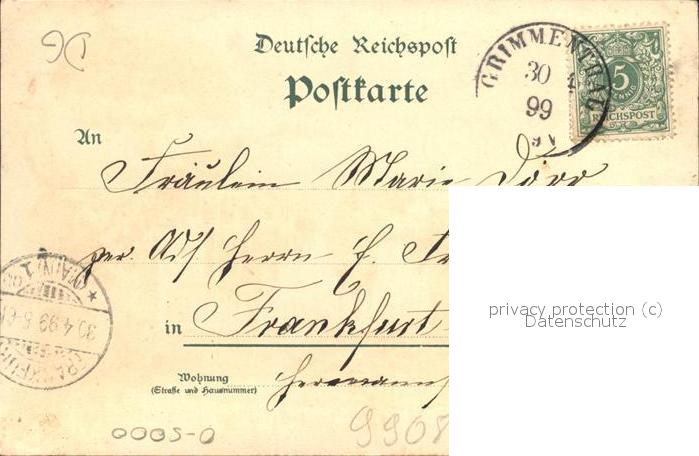 DG
Deutsche Reichspost
Postkarte
GRIMMENTHAL
30 4
99
5
PFENNIG
REICHSPOST
An
Fräulein Marie Dörr
per. Ads Herrn E.
FRANKFURT (MAIN) 1
30.4.99.5-6
in Frankfurt
Wohnung
(Straße und Hausnummer)
Hermanns
privacy protection (c)
Datenschutz
0005-0
9908